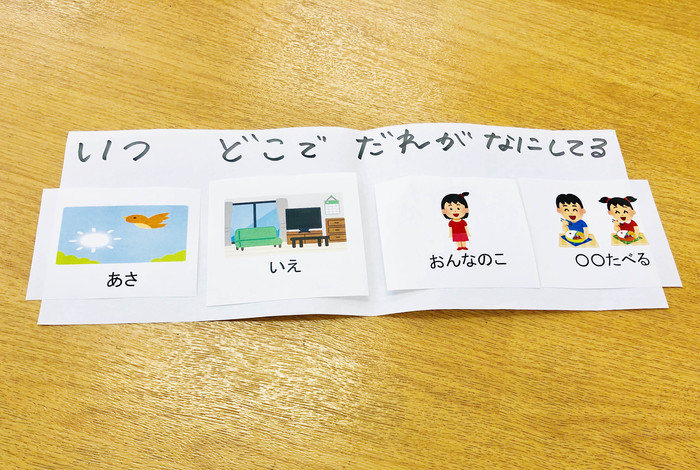 いつ どこで だれが なにしてる
あさ いえ おんなのこ 〇〇たべる